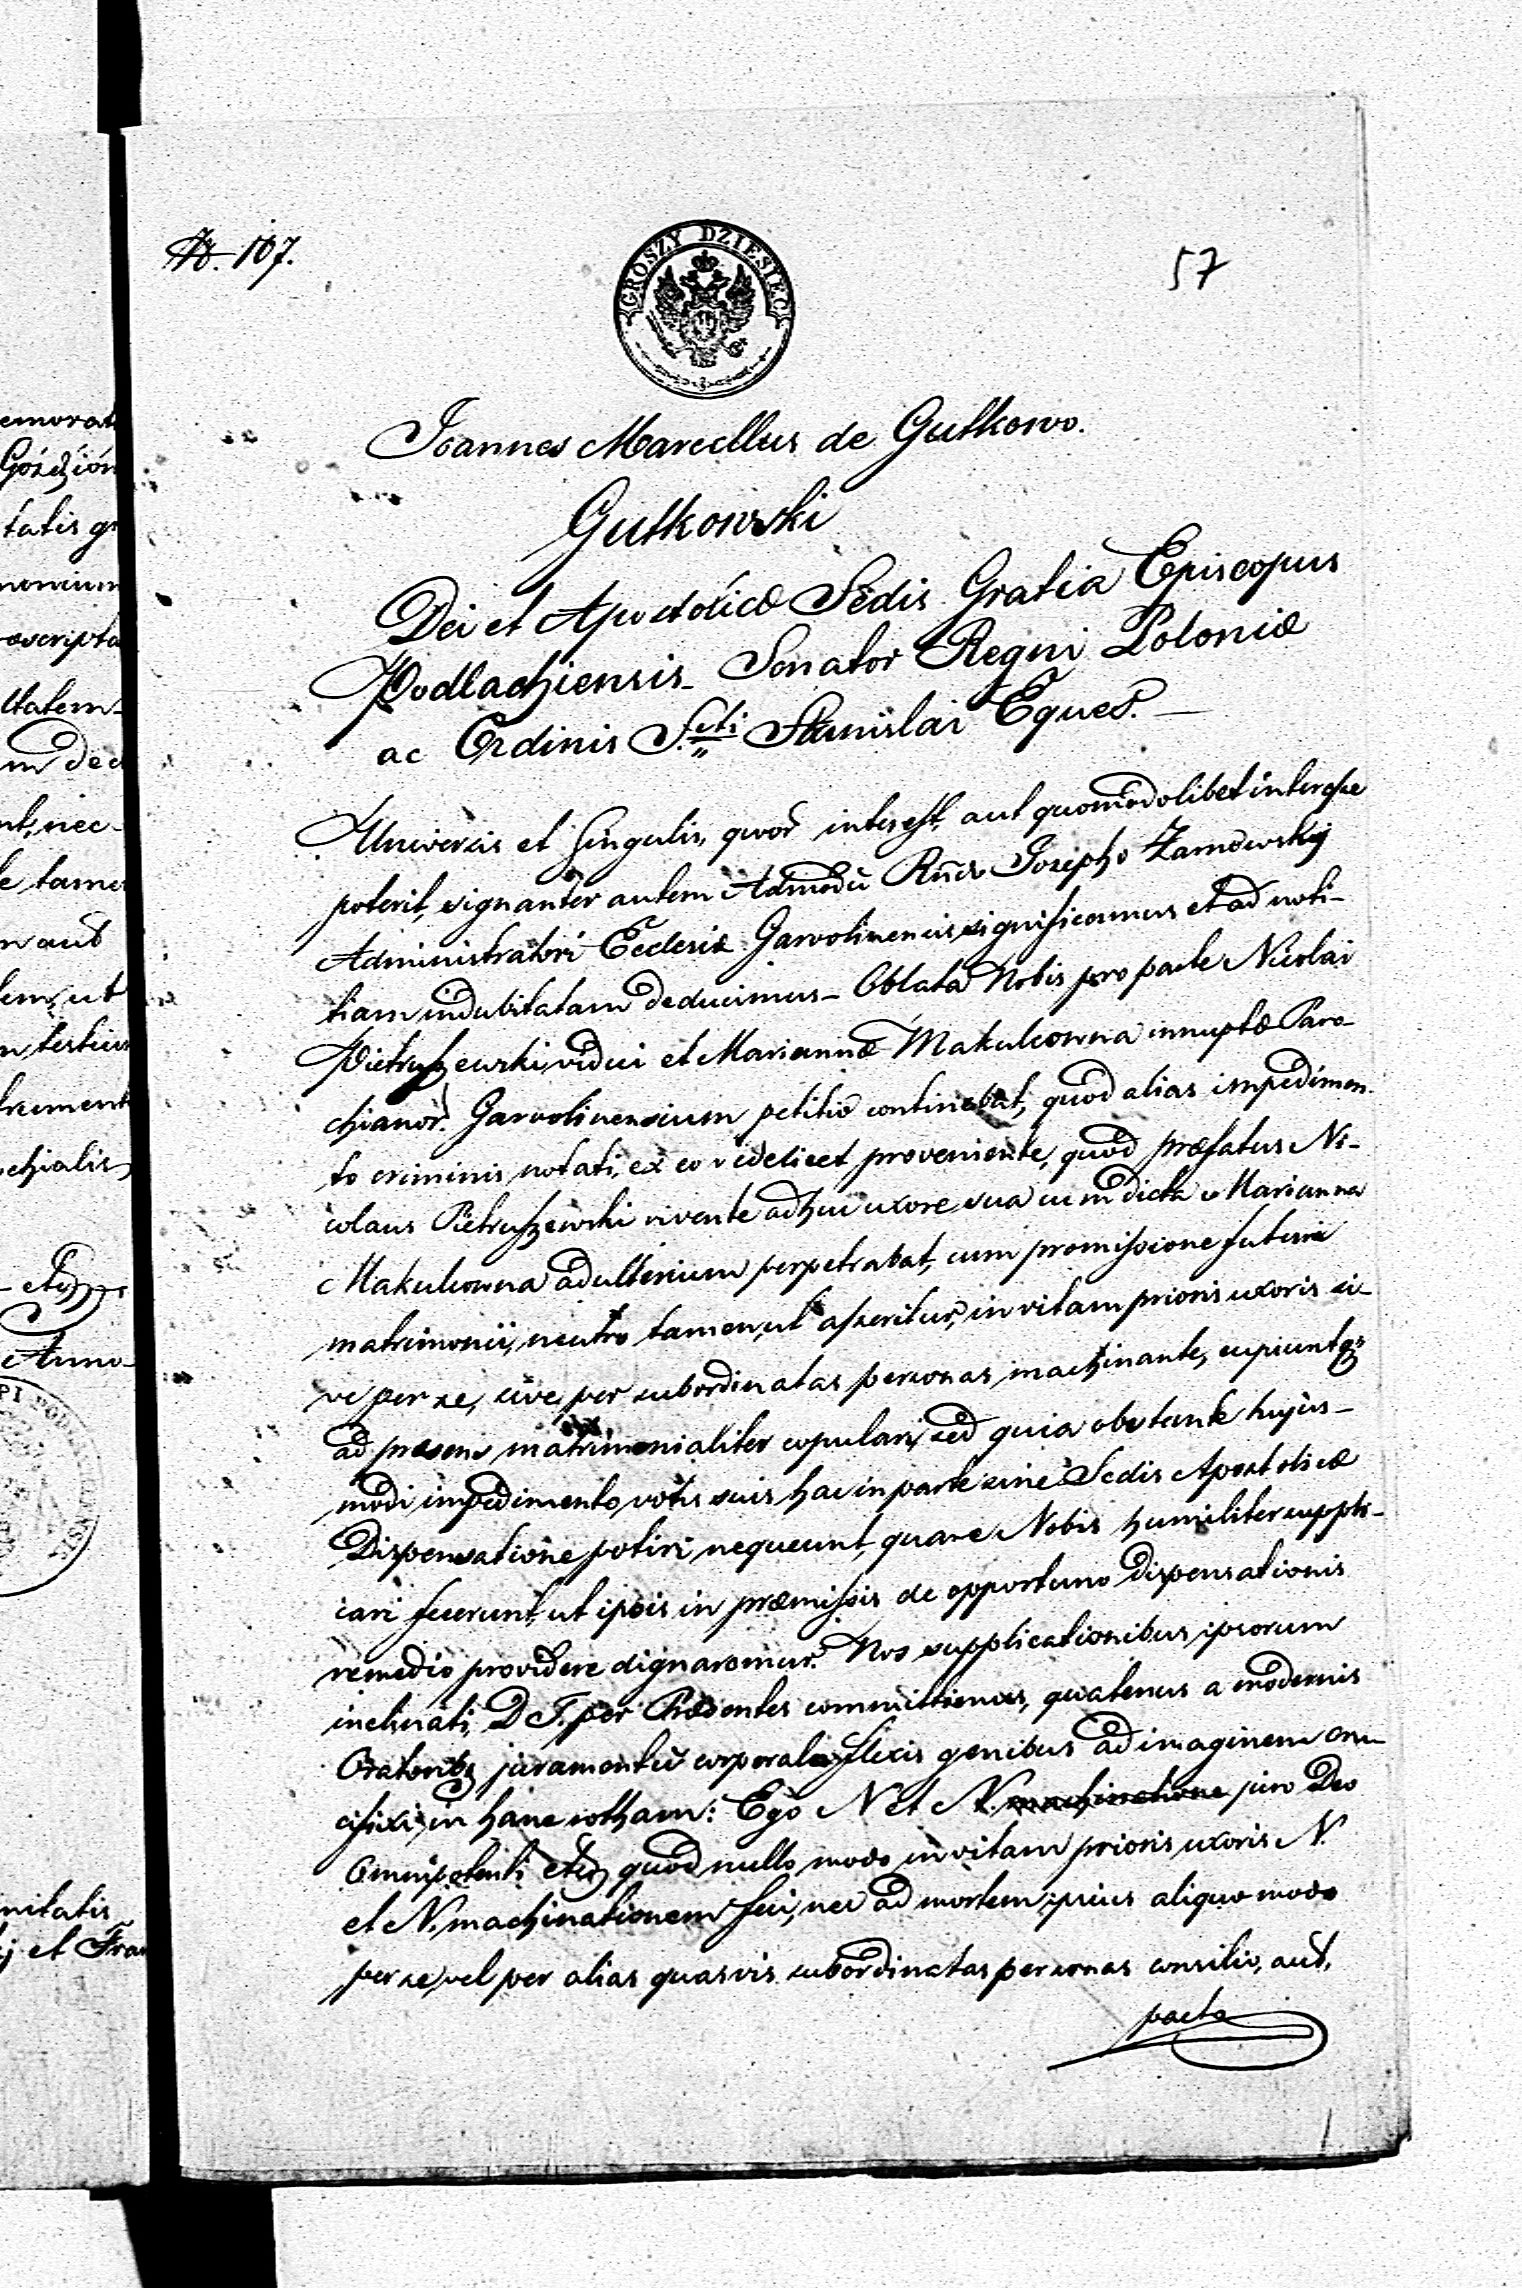 emorat
No. 107.
GROSZY DZIESIĘĆ
57
Góźdźión
tatis
Joannes Marcellus de Gutkowo.
Gutkowski
Dei et Apostolicæ Sedis Gratia Episcopus
Podlachiensis Senator Regni Poloniæ
ac Ordinis S.cti Stanislai Eques. —
Universis et singulis, quor interest, aut quomodolibet interesse
poterit, signanter autem Admodū Rñdo Josepho Zarnowskij
Administratori Ecclesiæ Garvolinensis significamus et ad noti-
tiam indubitatam deducimus – Oblata Nobis pro parte Nicolai
Pietruszewski, vidui et Mariannæ Makulcowna innuptæ Paro-
chianor. Garvolinensium petitio continebat, quod alias impedimen
to criminis notati, ex eo videlicet proveniente, quod præfatus Ni-
colaus Pietruszewski vivente adhuc uxore sua cum dicta Marianna
Makulcowna adulterium perpetrabat, cum promissione futuri
matrimonii, neutro tamen, ut asseritur, in vitam prioris uxoris si-
ve per se, sive per subordinatas personas machinante, cupiuntqs
ad præsens matrimonialiter copulari, sed quia obstante hujus-
modi impedimento, votis suis hac in parte sine Sedis Apostolicæ
Dispensatione potiri nequeunt, quare Nobis humiliter suppli-
cari fecerunt, ut ipsis in præmissis de opportuno dispensationis
remedio providere dignaremur. Nos supplicationibus ipsorum
inclinati, D. T. per Præsentes committimus, quatenus a modernis
Oratoribs juramentū corporale flexis genibus ad imaginem cru
cifixi, in hanc rotham: Ego N et N. machinatione juro Deo
Omnipotenti etc quod nullo modo in vitam prioris uxoris N.
et N. machinationem feci, nec ad mortem ipsius aliquo modo
per se, vel per alias quasvis subordinatas personas consilio, aut,
pacto
ltatem
nt, nec-
e tame
n aut
chialis
Anno
nitatis
et Fran